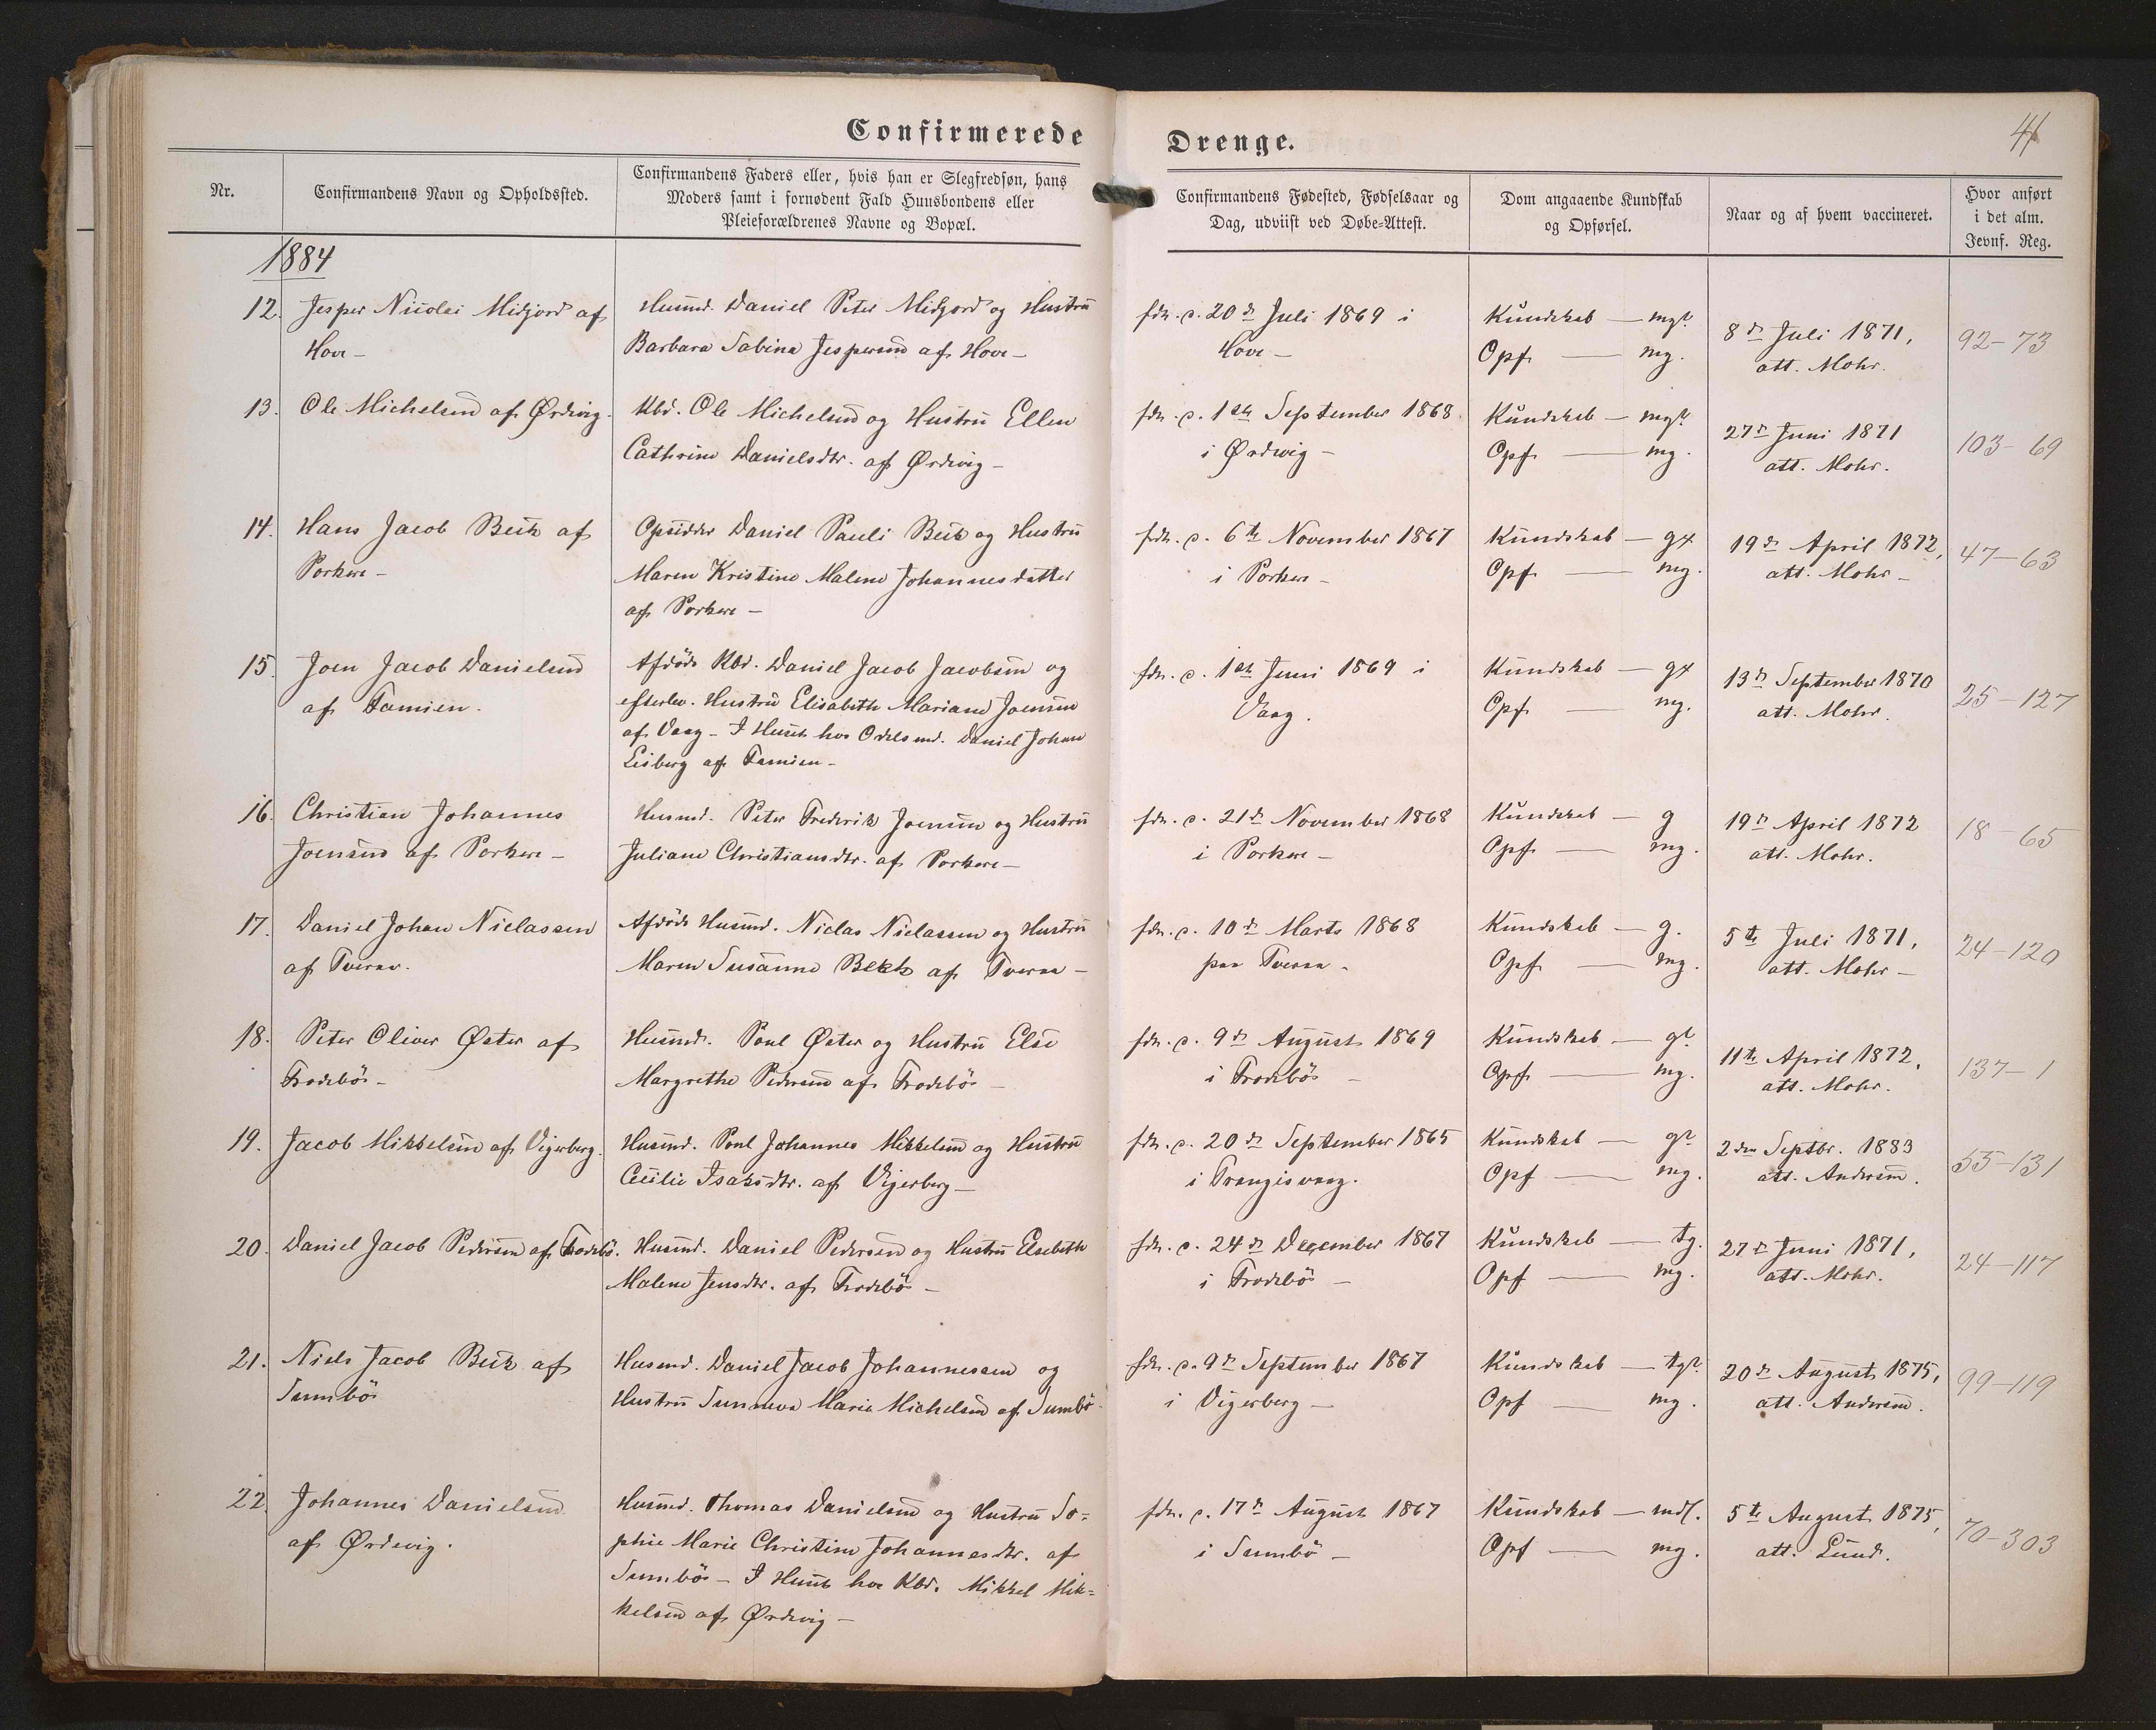 Confirmerede Drenge.
41
Nr.
Confirmandens Navn og Opholdssted.
Confirmandens Faders eller, hvis han er Slegfredsøn, hans
Moders samt i fornødent Fald Huusbondens eller
Pleieforældrenes Navne og Bopæl.
Confirmandens Fødested, Fødselsaar og
Dag, udviist ved Døbe-Attest.
Dom angaaende Kundskab
og Opførsel.
Naar og af hvem vaccineret.
Hvor anført
i det alm.
Jevnf. Reg.
1884
12. Jesper Nicolai Midjord af
Hove -
Husmd. Daniel Peter Midjord og Hustru
Barbara Sabina Jespersen af Hove -
fdt. d. 20de Juli 1869 i
Hove -
Kundskab - mg?
Opf. - mg.
8de Juli 1871,
att. Mohr.
92-73
13. Ole Michelsen af Ørdevig.
Kbd. Ole Michelsen og Hustru Ellen
Cathrine Danielsdtr. af Ørdevig -
fdt. d. 1ste September 1868
i Ørdevig -
Kundskab - mg?
Opf. - mg.
27de Juni 1871
att. Mohr.
103-69
14. Hans Jacob Beck af
Porkere -
Opsidder Daniel Pauli Beck og Hustru
Maren Kristine Malene Johannesdatter
af Porkere -
fdt. d. 6te November 1867
i Porkere -
Kundskab - g×
Opf. - mg.
19de April 1872,
att. Mohr -
47-63
15. Joen Jacob Danielsen
af Famien.
Afdøde Kbd. Daniel Jacob Jacobsen og
efterlev. Hustru Elisabeth Mariane Joensen
af Vaag - I Huset hos Odelsmd. Daniel Johan
Lisberg af Famien -
fdt. d. 1ste Juni 1869 i
Vaag.
Kundskab - g×
Opf. - mg.
13de September 1870
att. Mohr.
25-127
16. Christian Johannes
Joensen af Porkere -
Husmd. Peter Frederik Joensen og Hustru
Juliane Christiansdtr. af Porkere -
fdt. d. 21de November 1868
i Porkere -
Kundskab - g
Opf. - mg.
19de April 1872
att. Mohr.
18-65
17. Daniel Johan Niclassen
af Tveraa.
Afdøde Husmd. Niclas Niclassen og Hustru
Maren Susanne Beck af Tveraa -
fdt. d. 10de Marts 1868
paa Tveraa -
Kundskab - g.
Opf. - mg.
5te Juli 1871,
att. Mohr -
24-120
18. Peter Oliver Øster af
Frodebö -
Husmd. Poul Øster og Hustru Else
Margrethe Pedersen af Frodebö -
fdt. d. 9de August 1869
i Frodebö -
Kundskab - g?
Opf. - mg.
11te April 1872,
att. Mohr.
137-1
19. Jacob Mikkelsen af Vigerberg.
Husmd. Poul Johannes Mikkelsen og Hustru
Cecilie Isaksdtr. af Vigerberg -
fdt. d. 20de September 1865
i Trangisvaag.
Kundskab - g?
Opf - mg.
2den Septbr. 1883
att. Andersen.
55-131
20. Daniel Jacob Pedersen af Frodebö.
Husmd. Daniel Pedersen og Hustru Elsebeth
Malene Jensdtr. af Frodebö -
fdt. d. 24de December 1867
i Frodebö -
Kundskab - tg.
Opf - mg.
27de Juni 1871,
att. Mohr.
24-117
21. Niels Jacob Beck af
Sumbö
Husmd. Daniel Jacob Johannessen og
Hustru Sunneva Marie Michelsen af Sumbö -
fdt. d. 9de September 1867
i Vigerberg -
Kundskab - tg?
Opf - mg.
20de August 1875,
att. Andersen.
99-119
22. Johannes Danielsen
af Ørdevig.
Husmd. Thomas Danielsen og Hustru So=
phie Marie Christine Johannesdtr. af
Sumbö - I Huset hos Kbd. Mikkel Mik=
kelsen af Ørdevig -
fdt. d. 17de August 1867
i Sumbö -
Kundskab - mdl.
Opf - mg.
5te August 1875,
att. Lund.
70-303